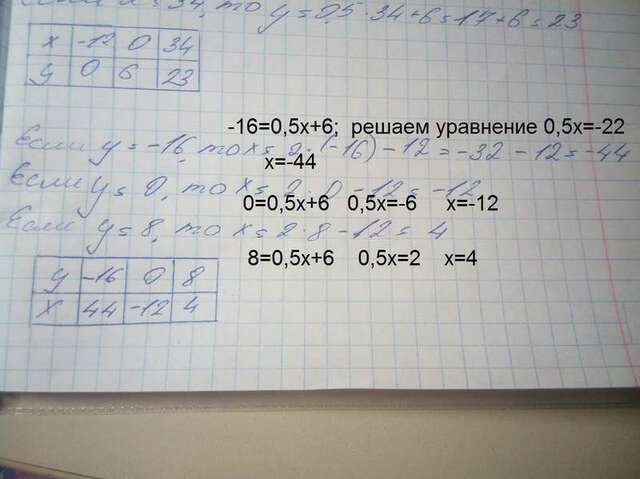 Если x=34, то y=0,5·34+6=17+6=23
x -12 0 34
y 0 6 23
-16=0,5x+6; решаем уравнение 0,5x=-22
Если y=-16, то x=2·(-16)-12=-32-12=-44
x=-44
Если y=0, то x=2·0-12=-12
0=0,5x+6 0,5x=-6 x=-12
Если y=8, то x=2·8-12=4
8=0,5x+6 0,5x=2 x=4
y -16 0 8
x 44 -12 4